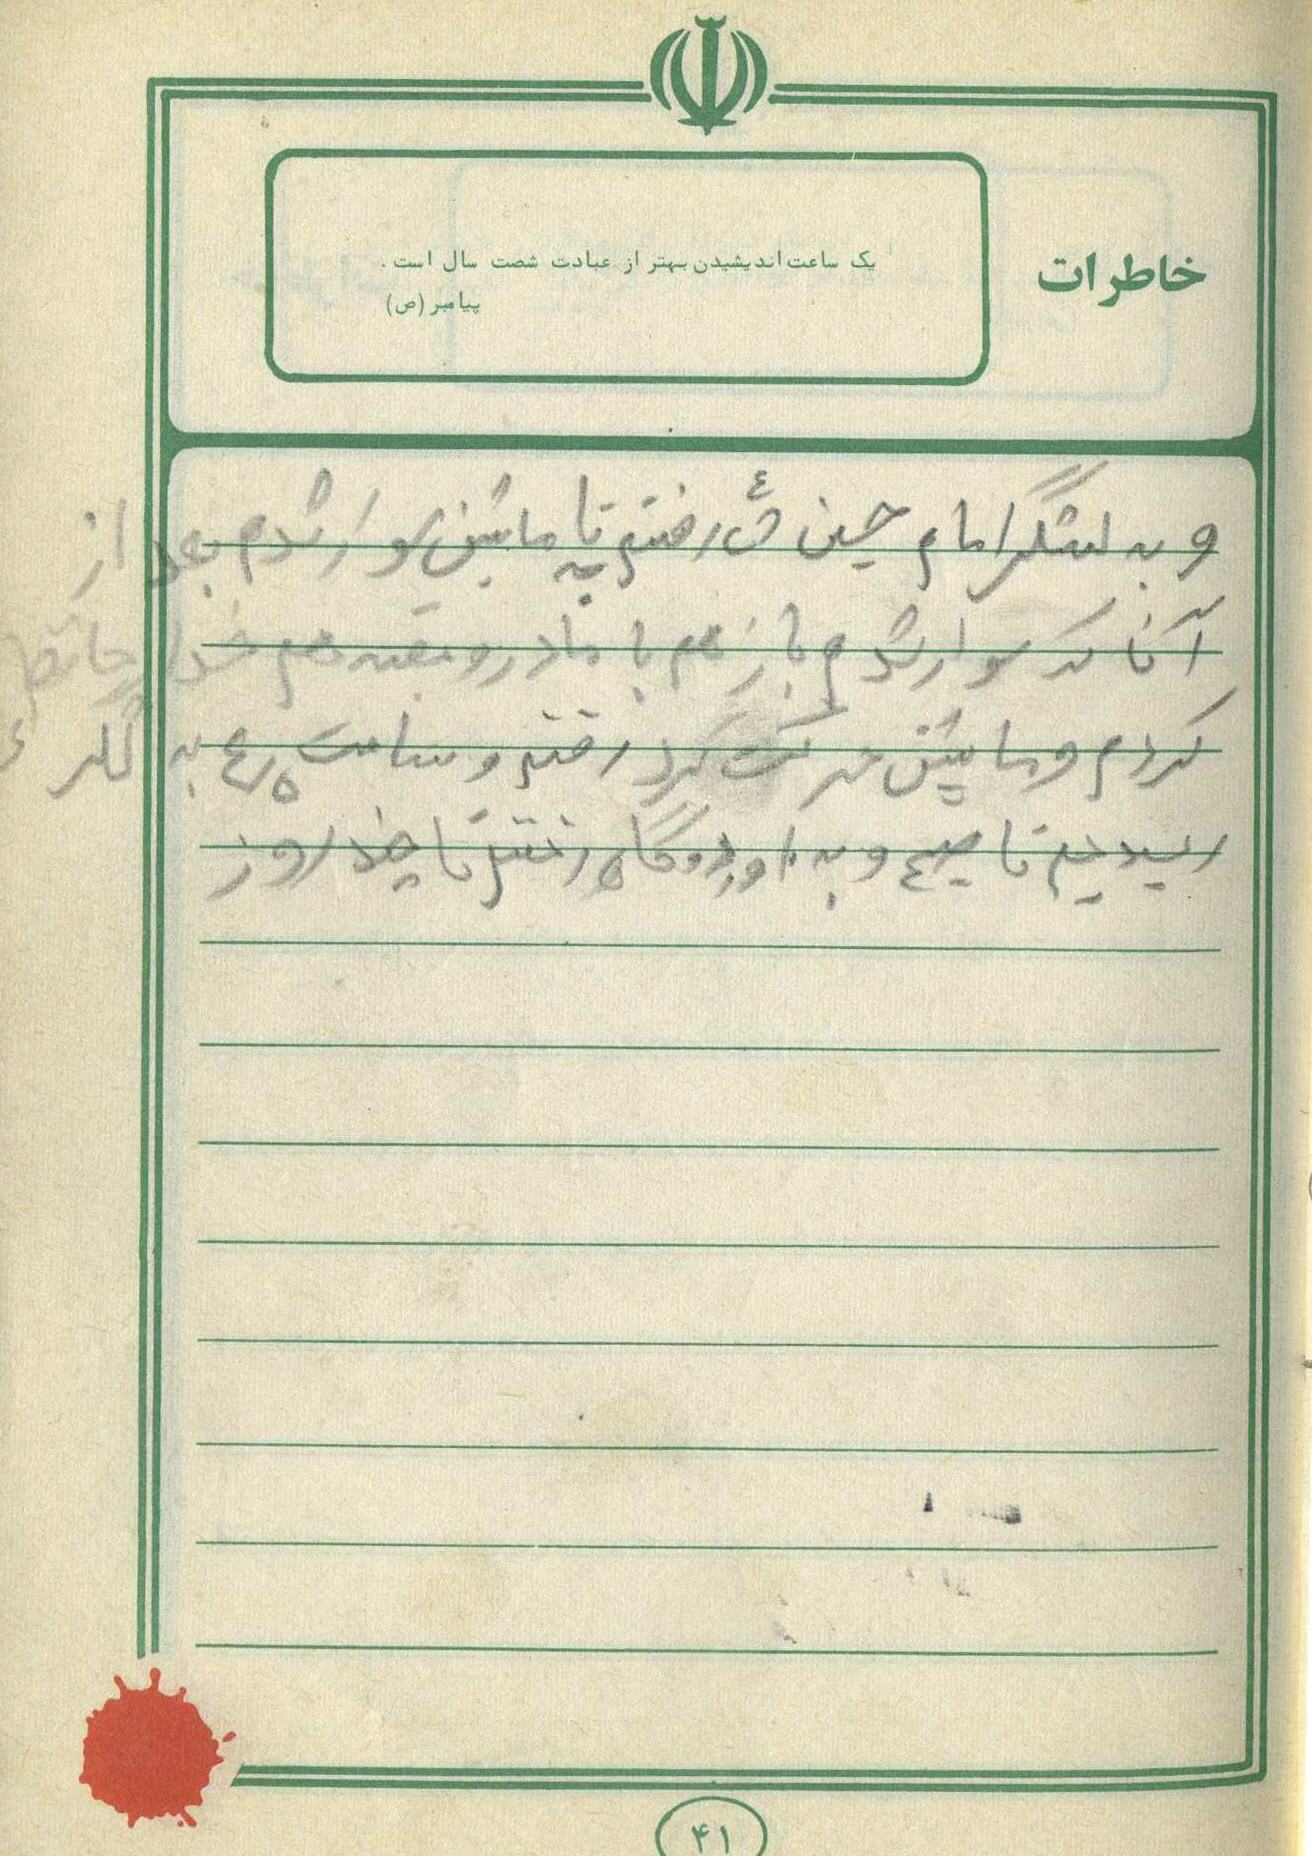 خاطرات
یک ساعت اندیشیدن بهتر از عبادت شصت سال است.
پیامبر (ص)
و به لشگر امام حسین ع رفتم تا به ماشین سوار شدم بعد از
آنکه سوار شدم باز هم با مادر و بقیه هم خدا حافظ
کردم و ماشین حرکت کرد رفتم و ساعت به
رسیدیم تا صبح و به اوردوگاه رفتم تا چند روز
۴۱